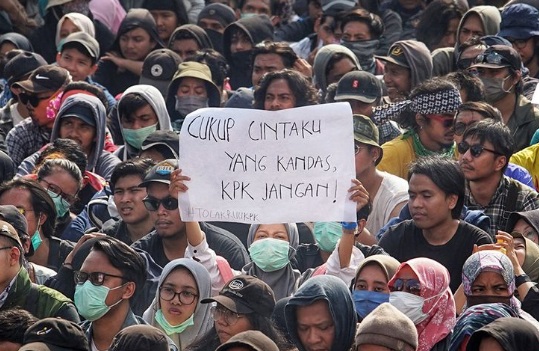 CUKUP CINTAKU
YANG KANDAS,
KPK JANGAN!
#TOLAKRUUKPK